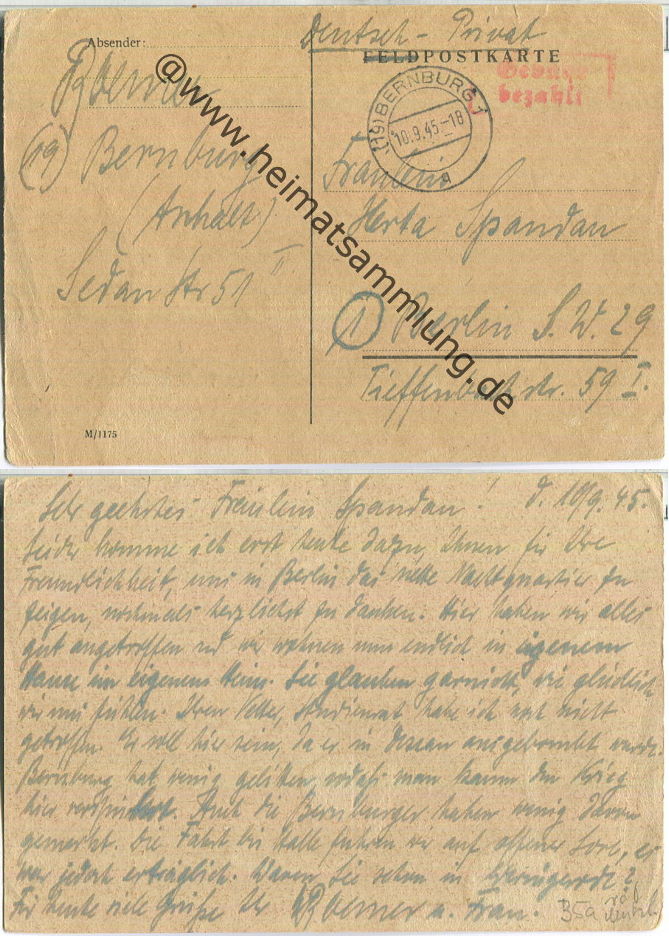 Absender:
Deutsch - Privat
FELDPOSTKARTE
Gebühr
bezahlt
(19) BERNBURG 1
10.9.45.-18
a
Boerner
(19) Bernburg
(Anhalt)
Sedan Str 51 II
Fräulein
Herta Spandau
(1) Berlin S.W. 29
Tieffenbachstr. 59 I.
M/1175
@www.heimatsammlung.de
Sehr geehrtes Fräulein Spandau! d. 10/9. 45.
Leider komme ich erst heute dazu, Ihnen für Ihre
Freundlichkeit, uns in Berlin das nette Nachtquartier zu
zeigen, nochmals herzlichst zu danken. Hier haben wir alles
gut angetroffen und wir wohnen nun endlich in eigenem
Hause im eigenen Heim. Sie glauben garnicht, wie glücklich
wir uns fühlen. Ihren Vetter, Studienrat habe ich noch nicht
getroffen. Er soll hier sein, da er in Dessau ausgebombt wurde.
Bernburg hat wenig gelitten, sodaß man kaum den Krieg
hier Auch die Bernburger haben wenig davon
gemerkt. Die Fahrt bis Halle fuhren wir auf offener Lore, es
war jedoch erträglich. Waren Sie schon in Wernigerode?
Für heute viele Grüße Ihr Boerner u. Frau.
35a